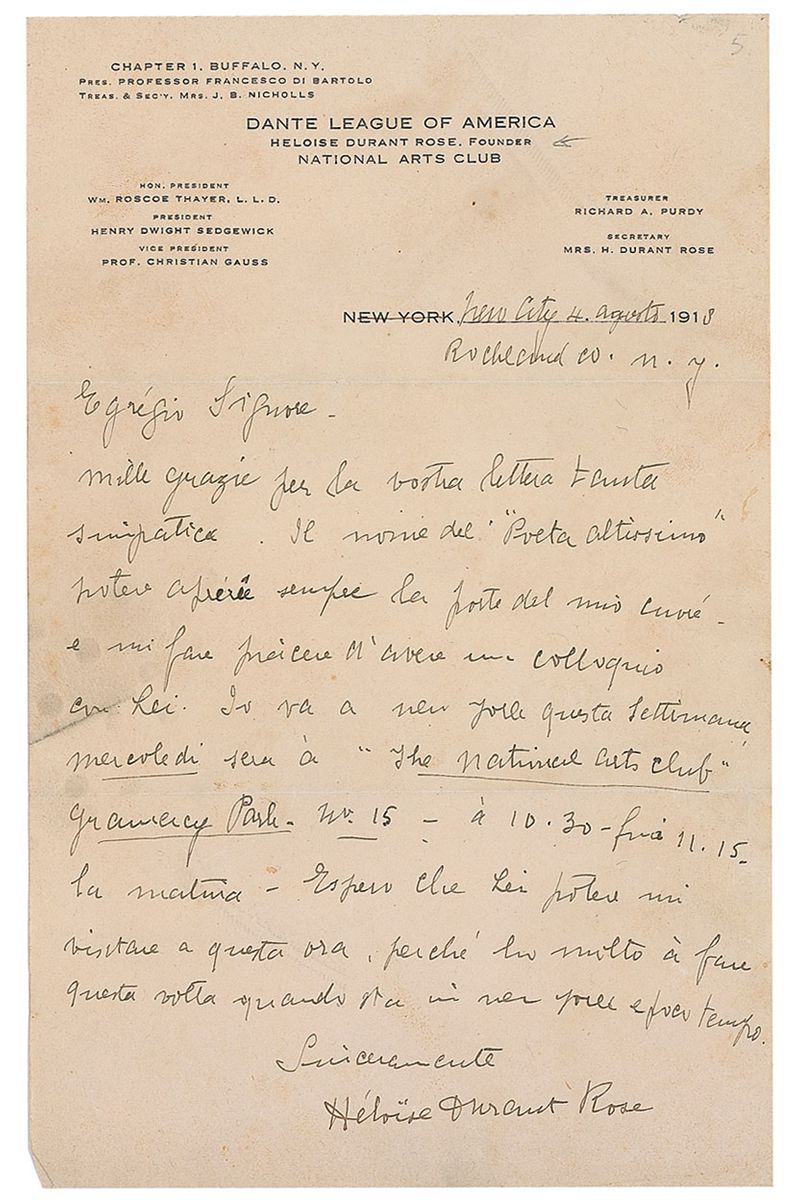 5
CHAPTER 1, BUFFALO, N. Y.
PRES. PROFESSOR FRANCESCO DI BARTOLO
TREAS. & SEC'Y. MRS. J. B. NICHOLLS
DANTE LEAGUE OF AMERICA
HELOISE DURANT ROSE, FOUNDER
NATIONAL ARTS CLUB
HON. PRESIDENT
WM. ROSCOE THAYER, L. L. D.
PRESIDENT
HENRY DWIGHT SEDGEWICK
VICE PRESIDENT
PROF. CHRISTIAN GAUSS
TREASURER
RICHARD A. PURDY
SECRETARY
MRS. H. DURANT ROSE
NEW YORK, New City 4. agosto 1918
Rockland co. n. y.
Egrégio Signore -
mille grazie per la vostra lettera tanta
simpatica. Il nome del "Poeta altissimo"
potere sempre la porte del mio
e mi fare piacere d'avere un colloquio
con Lei. Io va a new york questa settimana,
mercoledi sera à "The national arts club"
gramercy Park - No. 15 - à 10.30 - 11.15 -
la matina - Espero che Lei potere mi
visitare a questa ora, perché ho molto à fare
questa volta quando sta in new york e poco tempo.
Sinceramente
Héloïse Durant Rose